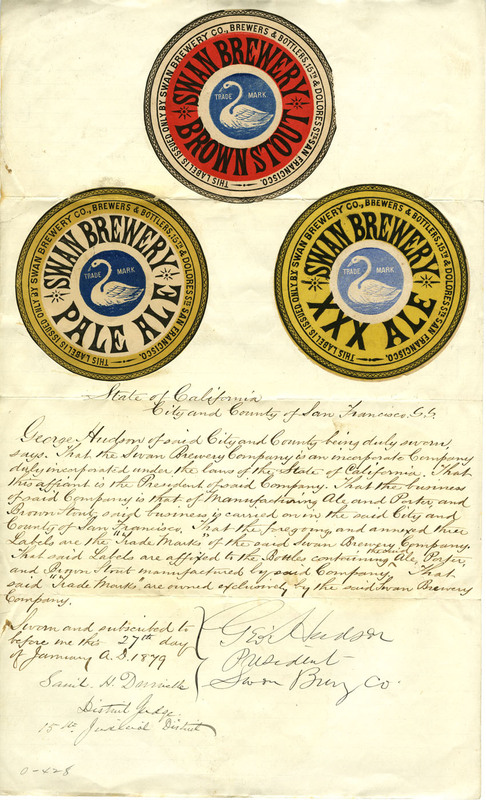 SWAN BREWERY
BROWN STOUT
TRADE MARK
THIS LABEL IS ISSUED ONLY BY SWAN BREWERY CO., BREWERS & BOTTLERS, 15TH & DOLORES STS SAN FRANCISCO.
SWAN BREWERY
PALE ALE
TRADE MARK
THIS LABEL IS ISSUED ONLY BY SWAN BREWERY CO., BREWERS & BOTTLERS, 15TH & DOLORES STS SAN FRANCISCO.
SWAN BREWERY
XXX ALE
TRADE MARK
THIS LABEL IS ISSUED ONLY BY SWAN BREWERY CO., BREWERS & BOTTLERS, 15TH & DOLORES STS SAN FRANCISCO.
State of California
City and County of San Francisco
George Hudson of said City and County being duly sworn,
says. That the Swan Brewery Company is an incorporate Company
duly incorporated under the laws of the State of California. That
this affiant is the President of said Company. That the business
of said Company is that of Manufacturing Ale and Porter, and
Brown Stout, said business is carried on in the said City and
County of San Francisco. That the foregoing and annexed three
Labels are the "Trade Marks" of the said Swan Brewery Company.
That said Labels are affixed to the Bottles containing the Ale, Porter,
and Brown Stout manufactured by said Company. That
said "Trade Marks" are owned exclusively by the said Swan Brewery
Company.
Sworn and subscribed to
before me this 27th day
of January A.D. 1879
Geo. Hudson
President
Swan Brewy Co.
Saml. H.
District Judge
15th Judicial District
0-428